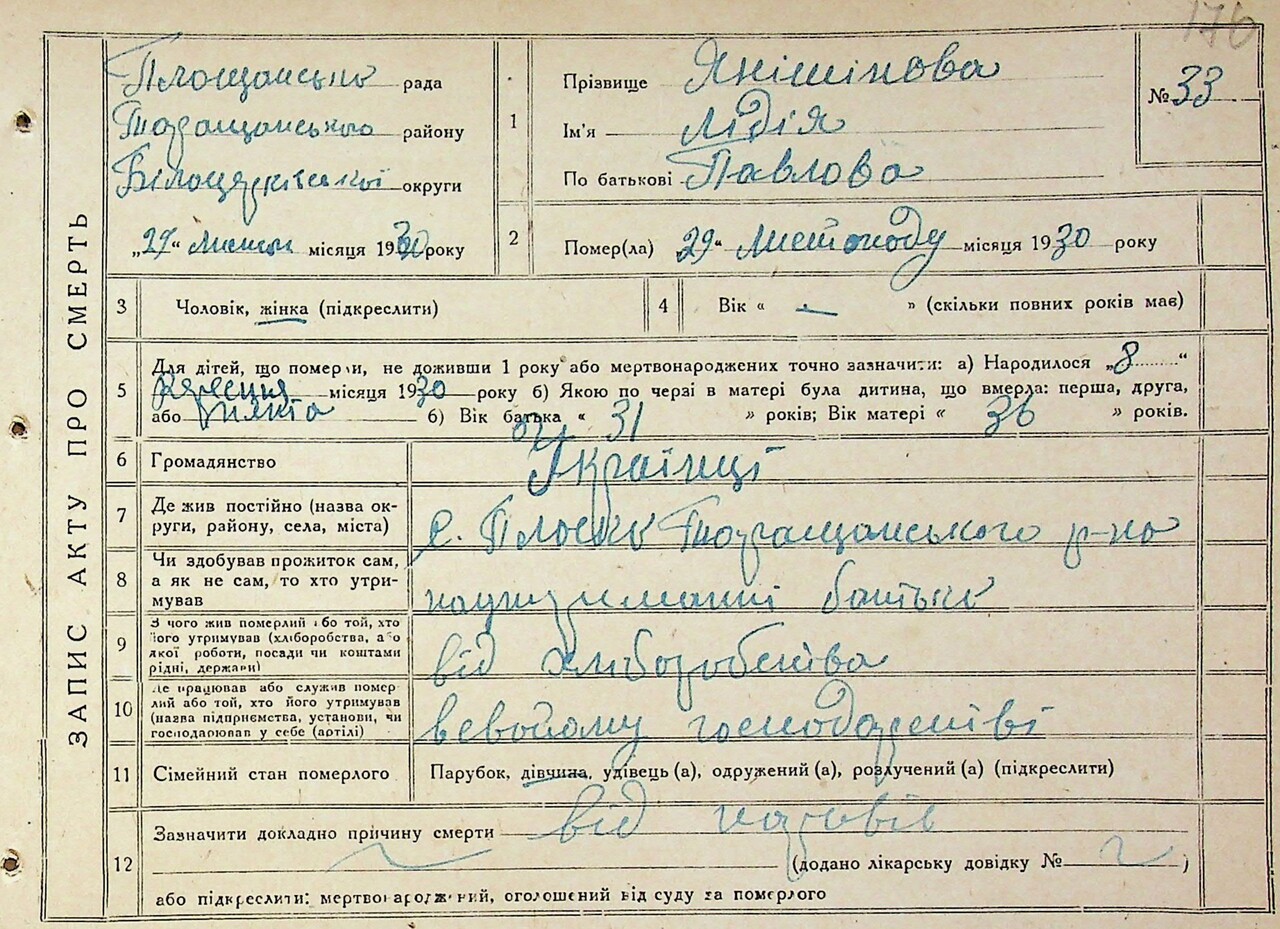 176
ЗАПИС АКТУ ПРО СМЕРТЬ
Площанська рада
Таращанського району
Білоцерківської округи
„29“ листоп місяця 1930 року
1 Прізвище Янішінова
Ім'я Лідія
По батькові Павлова
№ 33
2 Помер(ла) 29“ листопаду місяця 1930 року
3 Чоловік, жінка (підкреслити)
4 Вік « — » (скільки повних років має)
5 Для дітей, що померли, не доживши 1 року або мертвонароджених точно зазначити: а) Народилося „8“
вересня місяця 1930 року б) Якою по черзі в матері була дитина, що вмерла: перша, друга,
або пʼята б) Вік батька « 31 » років; Вік матері « 36 » років.
6 Громадянство Українці
7 Де жив постійно (назва округи, району, села, міста) с. Плоска Таращанського р-на
8 Чи здобував прожиток сам,
а як не сам, то хто утримував на утриманні батька
9 З чого жив померлий або той, хто
його утримував (хліборобства, або
якої роботи, посади чи коштами
рідні, держави) від хліборобства
10 Де працював або служив померлий або той, хто його утримував
(назва підприємства, установи, чи
господарював у себе (артілі) всвойому господарстві
11 Сімейний стан померлого Парубок, дівчина, удівець (а), одружений (а), розлучений (а) (підкреслити)
12 Зазначити докладно причину смерти від
(додано лікарську довідку № )
або підкреслити: мертвонароджений, оголошений від суду за померлого